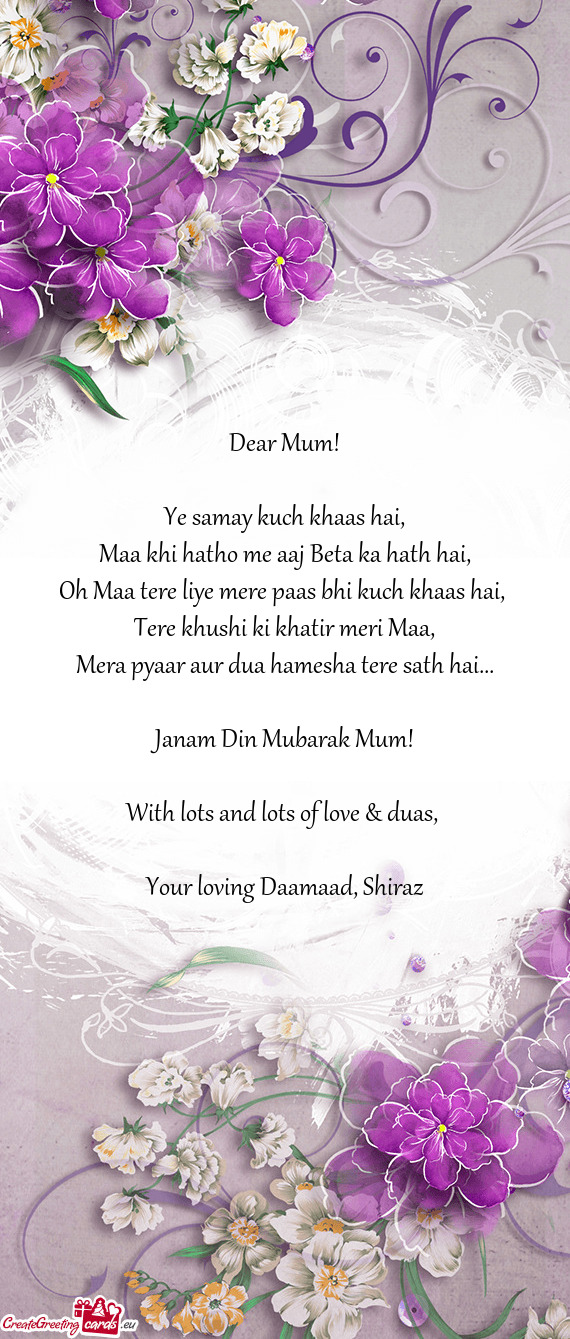 Dear Mum!
Ye samay kuch khaas hai,
Maa khi hatho me aaj Beta ka hath hai,
Oh Maa tere liye mere paas bhi kuch khaas hai,
Tere khushi ki khatir meri Maa,
Mera pyaar aur dua hamesha tere sath hai...
Janam Din Mubarak Mum!
With lots and lots of love & duas,
Your loving Daamaad, Shiraz
CreateGreeting cards .eu